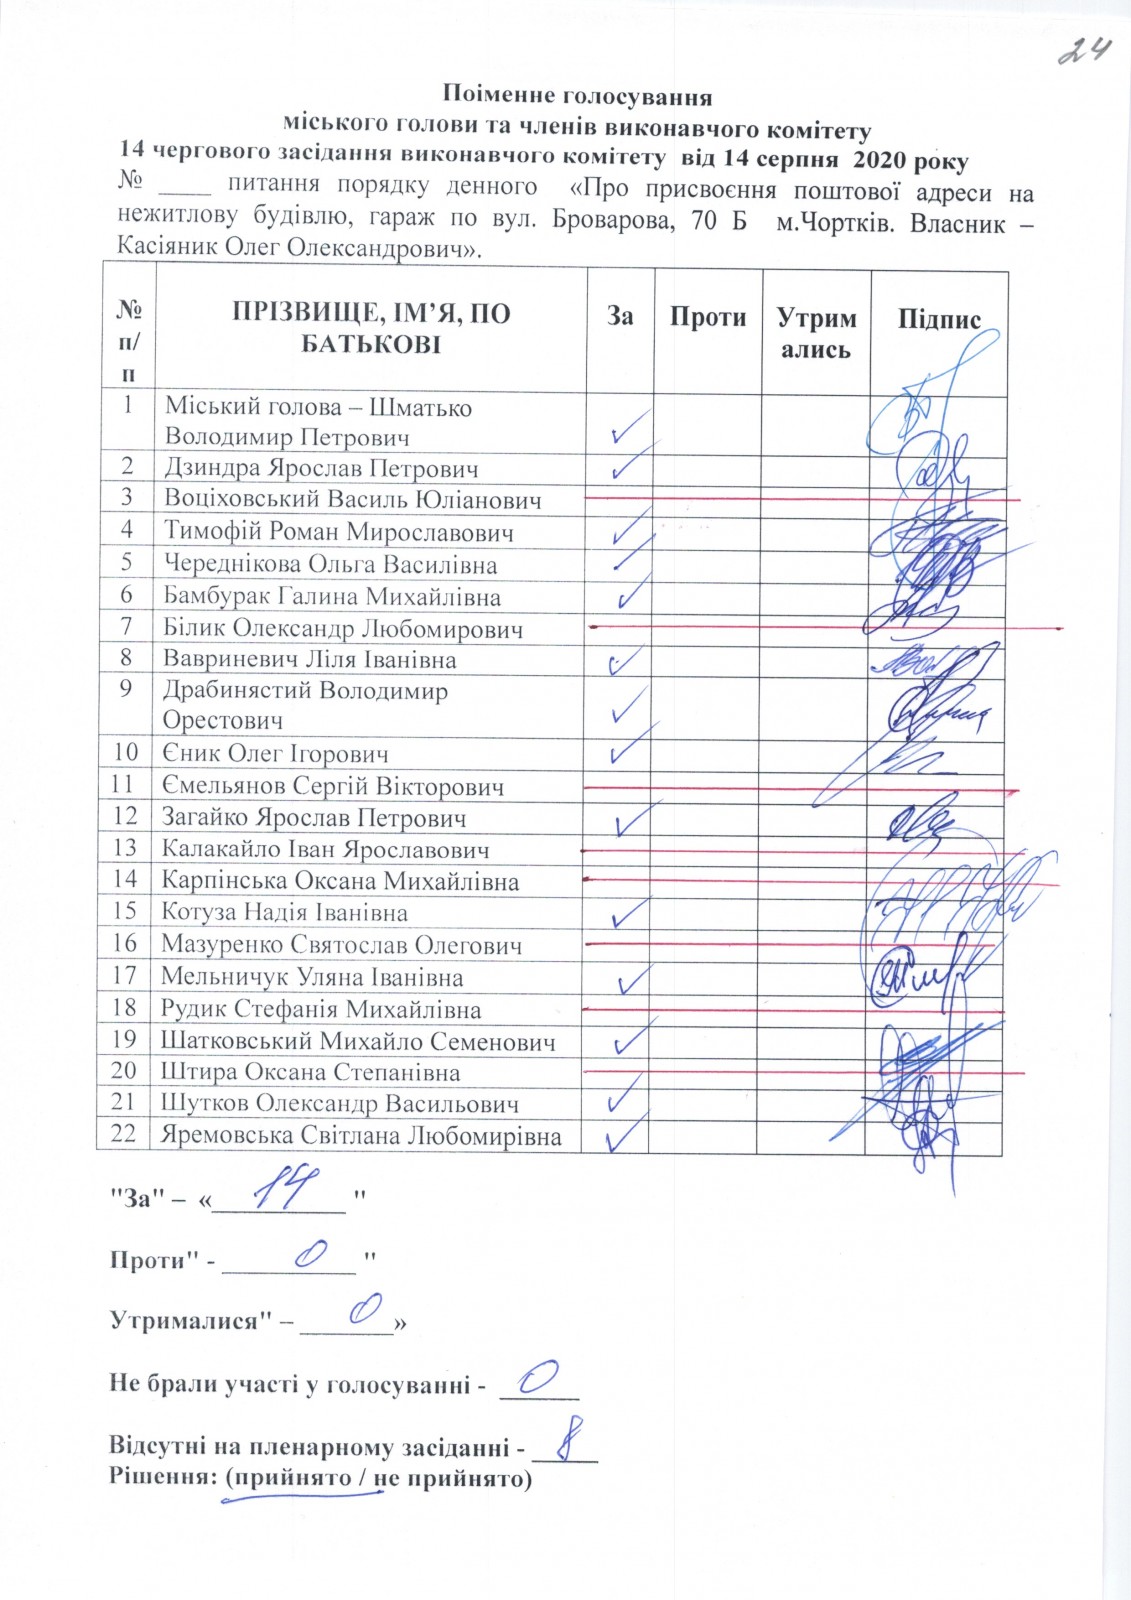 24
Поіменне голосування
міського голови та членів виконавчого комітету
14 чергового засідання виконавчого комітету від 14 серпня 2020 року
№ ____ питання порядку денного «Про присвоєння поштової адреси на
нежитлову будівлю, гараж по вул. Броварова, 70 Б м.Чортків. Власник –
Касіяник Олег Олександрович».
№ п/п ПРІЗВИЩЕ, ІМ’Я, ПО БАТЬКОВІ За Проти Утримались Підпис
1 Міський голова – Шматько
Володимир Петрович ✓
2 Дзиндра Ярослав Петрович ✓
3 Воціховський Василь Юліанович
4 Тимофій Роман Мирославович ✓
5 Череднікова Ольга Василівна ✓
6 Бамбурак Галина Михайлівна ✓
7 Білик Олександр Любомирович
8 Вавриневич Ліля Іванівна ✓
9 Драбинястий Володимир
Орестович ✓
10 Єник Олег Ігорович ✓
11 Ємельянов Сергій Вікторович
12 Загайко Ярослав Петрович ✓
13 Калакайло Іван Ярославович
14 Карпінська Оксана Михайлівна
15 Котуза Надія Іванівна ✓
16 Мазуренко Святослав Олегович
17 Мельничук Уляна Іванівна ✓
18 Рудик Стефанія Михайлівна
19 Шатковський Михайло Семенович ✓
20 Штира Оксана Степанівна
21 Шутков Олександр Васильович ✓
22 Яремовська Світлана Любомирівна ✓
"За" – «___14___ "
Проти" - ___0___ "
Утрималися" – ___0___»
Не брали участі у голосуванні - ___0___
Відсутні на пленарному засіданні - ___8___
Рішення: (прийнято / не прийнято)